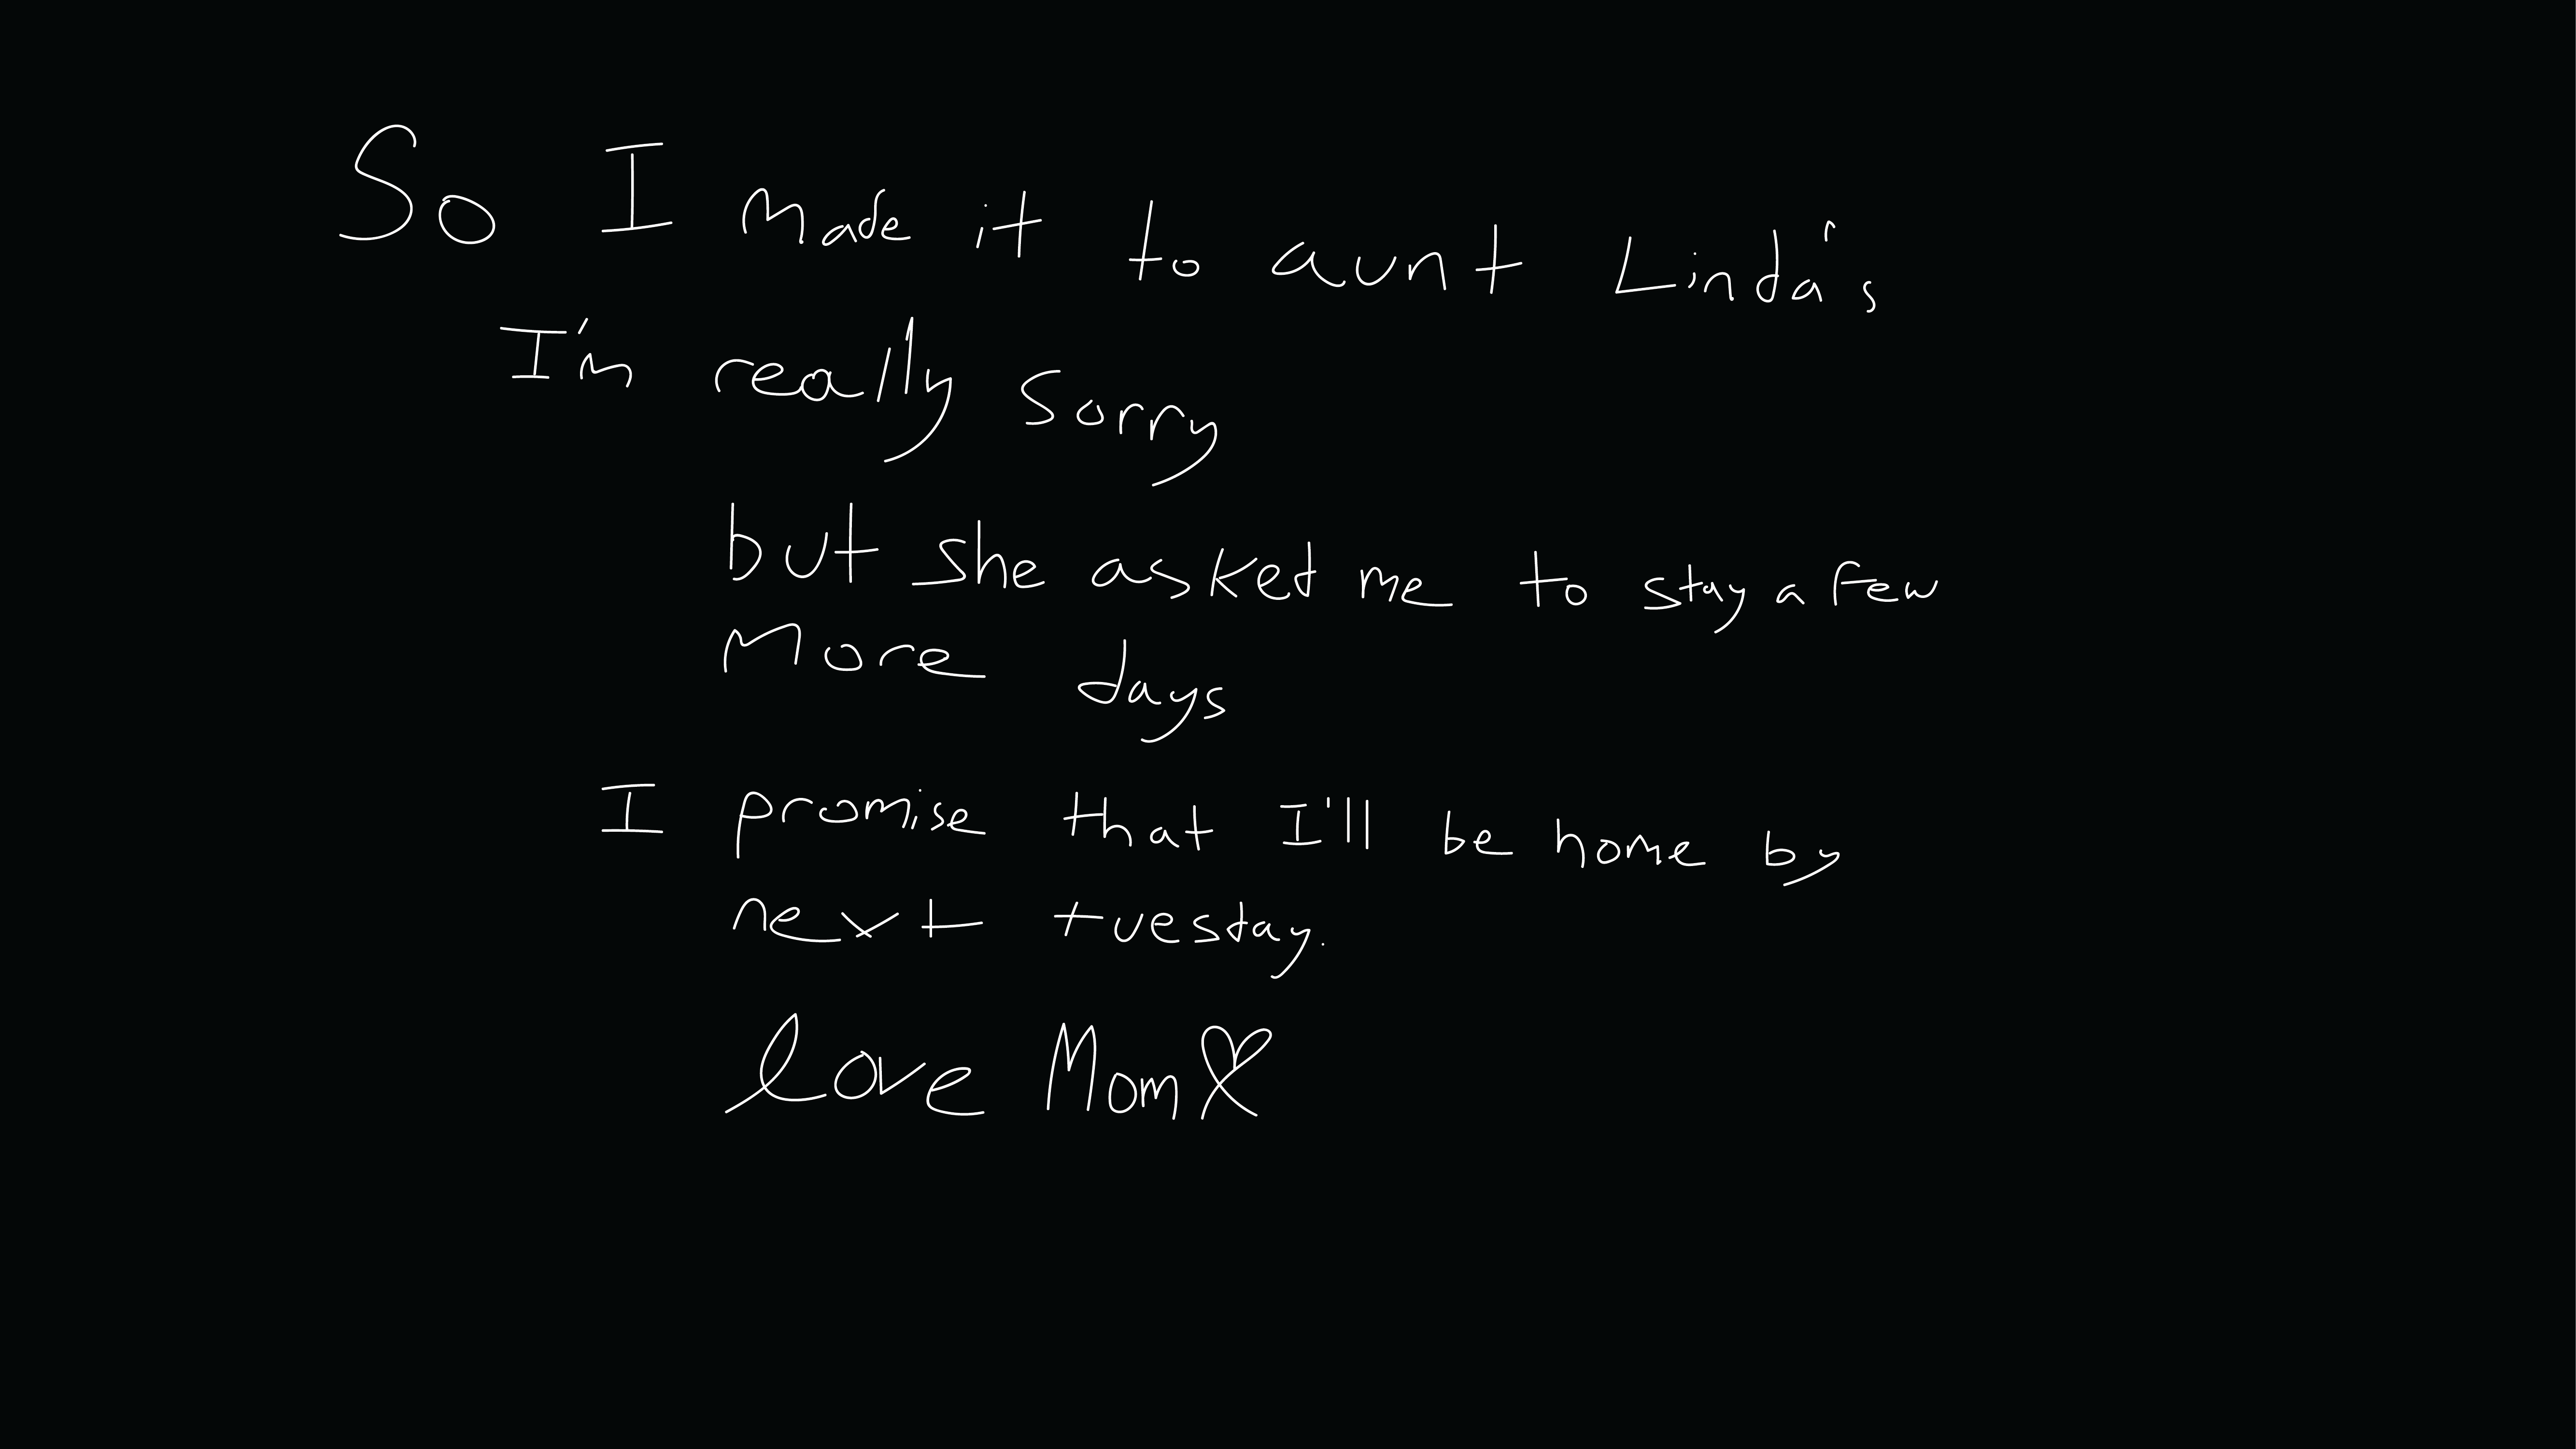 So I made it to aunt Linda's
I'm really sorry
but she asked me to stay a few
More days
I promise that I'll be home by
next tuesday.
love Mom